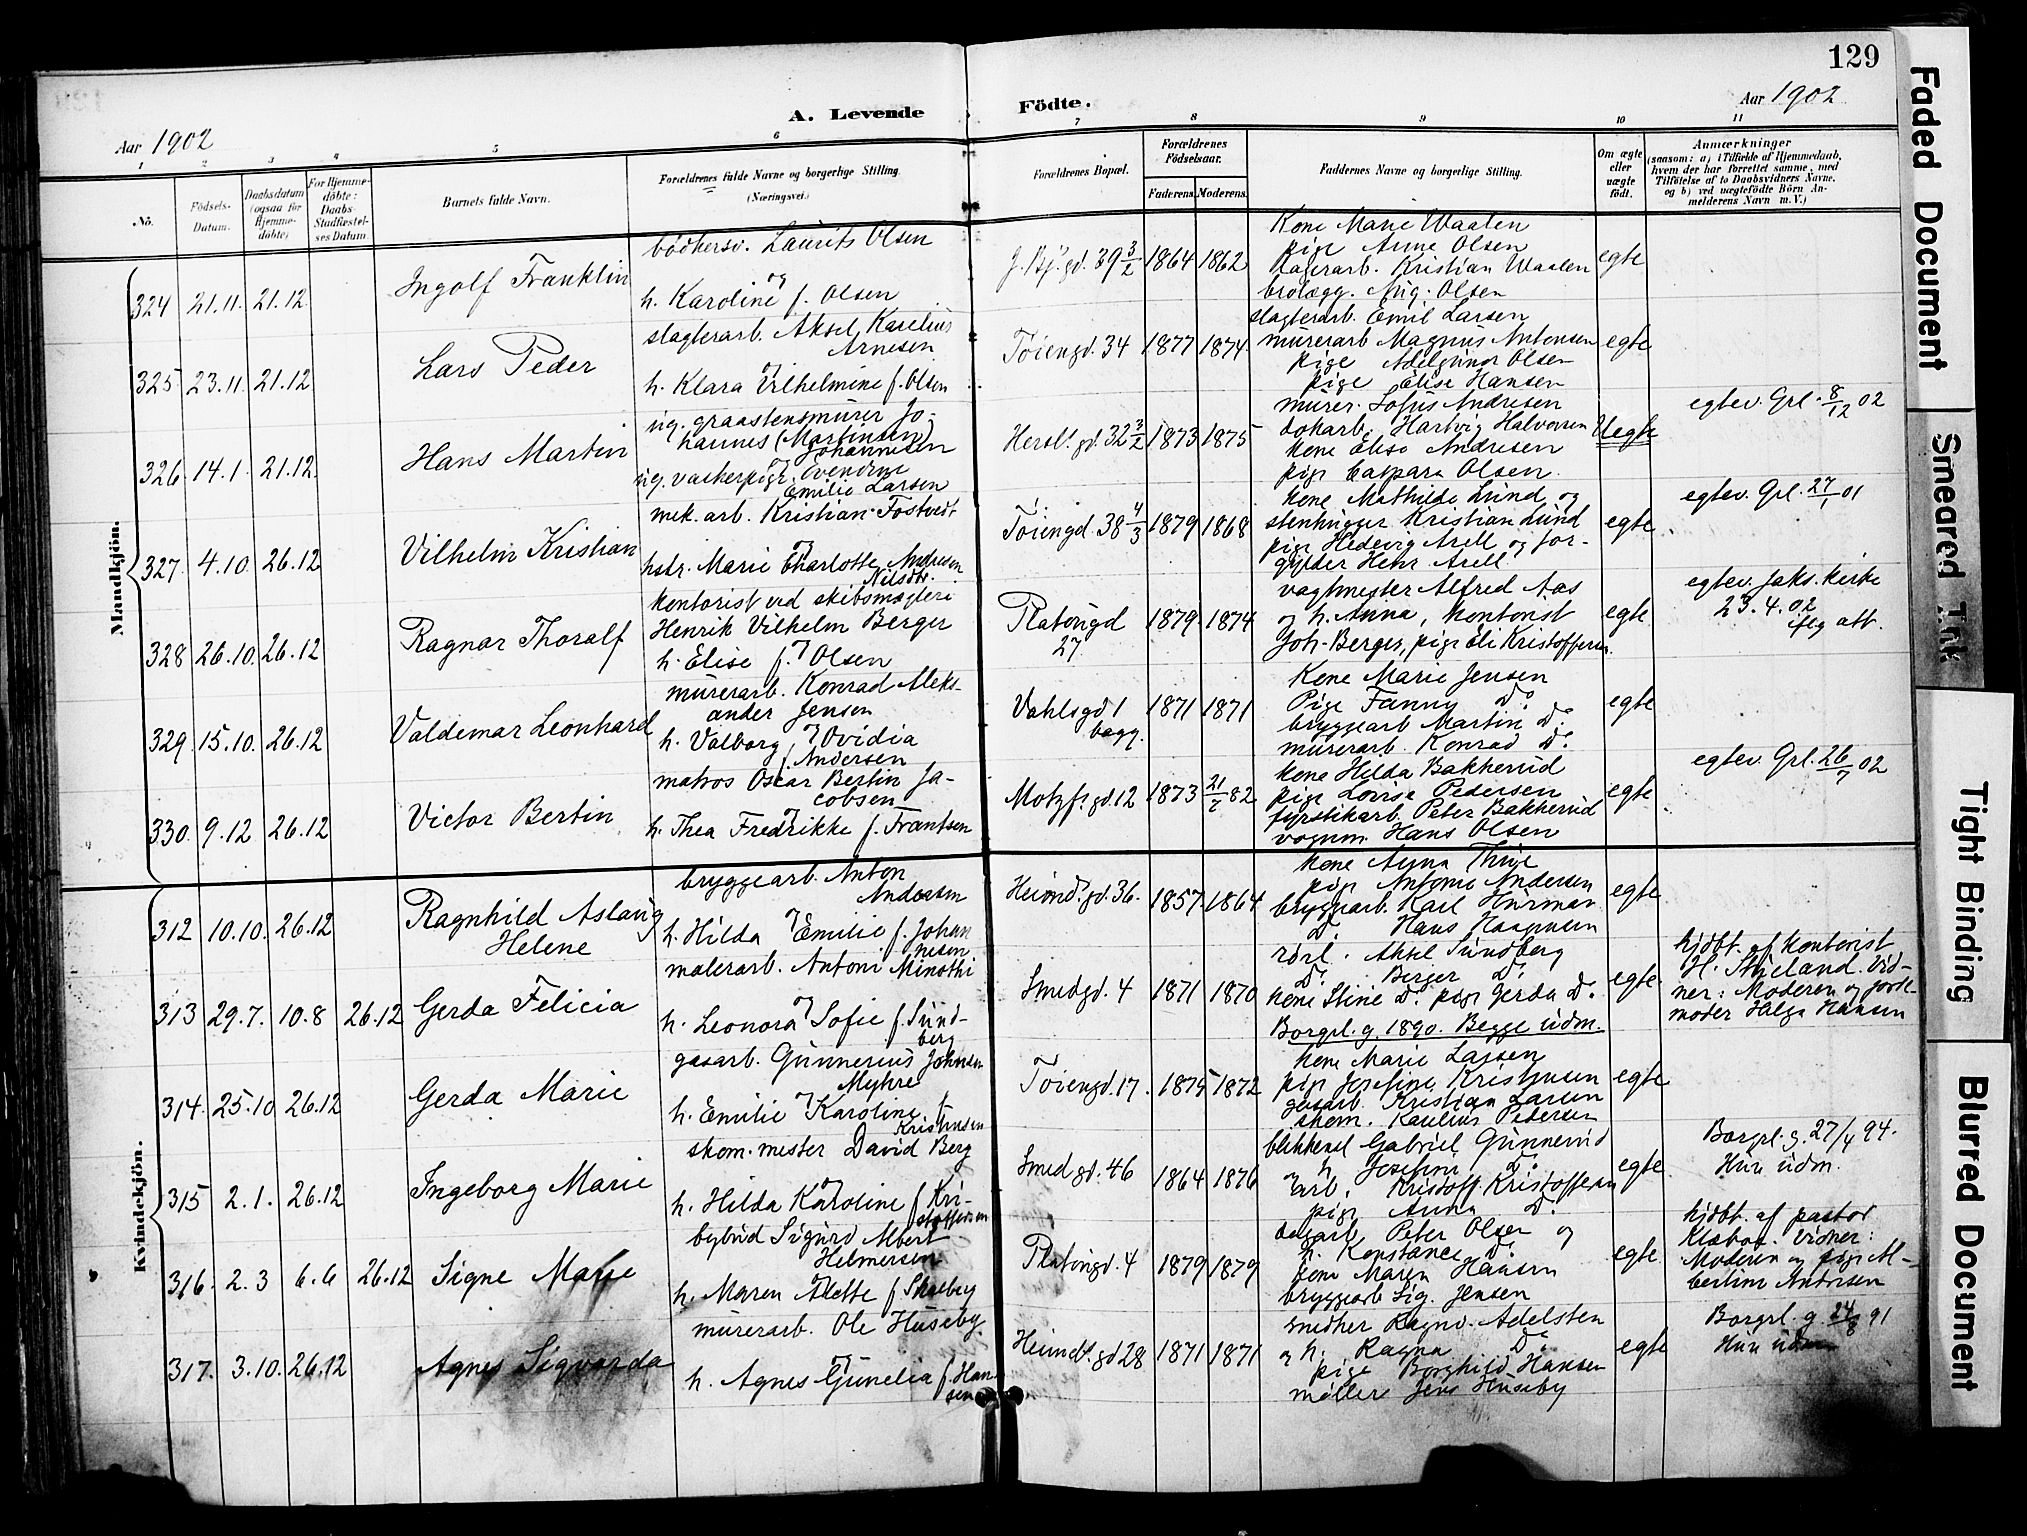 129
A. Levende Födte.
Aar 1902
Aar 1902
1 2 3 4 5 6 7 8 9 10 11
No.
Födsels-Datum.
Daabsdatum (ogsaa for Hjemme-döbte)
For Hjemme-döbte: Daabs-Stadfæstel-ses Datum.
Barnets fulde Navn.
Forældrenes fulde Navne og borgerlige Stilling. (Næringsvei.)
Forældrenes Bopæl.
Forældrenes Födselsaar.
Faderens. Moderens.
Faddernes Navne og borgerlige Stilling.
Om ægte eller uægte födt.
Anmærkninger
(saasom: a) i Tilfælde af Hjemmedaab, hvem der har forrettet samme, med Tilföielse af to Daabsvidners Navne, og b) ved uægtefödte Börn An-melderens Navn m. V.)
Mandkjön.
324 21.11. 21.12 Ingolf Franklin
bödkersv. Laurits Olsen
og
h. Karoline f. Olsen
39 3/2 1864 1862
Kone Marie Waalen
pige Anne Olsen
Kristian Waalen
brolægg. Aug. Olsen
egte
325 23.11. 21.12 Lars Peder
slagterarb. Aksel Karelius
Arnesen
og
h. Klara Vilhelmine f. Olsen
Töiengd. 34 1877 1874
slagterarb. Emil Larsen
murerarb Magnus Antonsen
pige Olsen
pige Elise Hansen
egte
326 14.1. 21.12. Hans Martin
ug. graastensmurer Jo-
hannes (Martinsen)
Johannesen
og
Emilie Larsen
Hersl. gd. 32 3/2 1873 1875
murer. Sofus Andresen
Hartvig Halvorsen
kone Elise Andresen
pige Caspara Olsen
Uegte
egtev. Grl. 8/12 02
327. 4.10. 26.12 Vilhelm Kristian
mek. arb. Kristian Tostvedt
og
Marie Charlotte Andresen
Nilsdtr.
Töiengd. 38 4/3 1879 1868
kone Mathilde Lund og
stenhugger Kristian Lund
pige Hedevig Arell og for-
gylder Henr. Arell
egte
egtev. Grl. 27/1 01
328 26.10. 26.12 Ragnar Thoralf
kontorist ved skibsmægleri
Henrik Vilhelm Berger
og
h. Elise f. Olsen
Platöugd 27 1879 1874
vagtmester Alfred Aas
og h. Anna, kontorist
Joh. Berger, pige Kristoffersen.
egte
egtev. Jaks. kirke
23.4.02
iflg att.
329. 15.10. 26.12 Valdemar Leonhard
murerarb. Konrad Aleks-
ander Jensen
og
h. Valborg Ovidia
f. Andersen
Vahlsgd 1
bagg. 1871 1871
Kone Marie Jensen
Pige Fanny Do
bryggearb Martin Do
murerarb. Konrad Do
egte
330. 9.12 26.12 Victor Bertin
matros Oscar Bertin Ja-
cobsen
og
h. Thea Fredrikke f. Frantsen
Motzf. gd. 12 1873 82
kone Hilda Bakkerud
pige Lovise Pedersen
fyrstikarb. Peter Bakkerud
vognm. Hans Olsen
egte
egtev. Grl. 26/7 02
Kvindekjön.
312 10.10. 26.12 Ragnhild Aslaug
Helene
bryggearb. Anton
Andersen
og
h. Hilda Emilie f. Johan
nesen
Heimd. gd. 36. 1857 1864
kone Anna Thue
pige Antonie Andersen
bryggearb. Karl
Do Hans
egte
313 29.7. 10.8 26.12 Gerda Felicia
malerarb. Anton Minothi
og
h. Leonora Sofie f. Sund-
berg
Smedgd. 4 1871 1870
rörl. Aksel Sundberg
Do Berger Do
kone Stine Do pige Gerda Do
Borgrl. g. 1890. Begge udm.
egte
hjdbt. af kontorist
H. Vid-
ner: Moderen og
moder Helga Hansen
314. 25.10 26.12 Gerda Marie
gasarb. Gunnerius Johnsen
Myhre
og
h. Emilie Karoline f.
Kristensen
Töiengd. 17. 1875 1872
kone Marie Larsen
pige Josefine Kristensen
gasarb. Kristian Larsen
skom. Karelius Pedersen
egte
315 2.1. 26.12 Ingeborg Marie
skom. mester David Berg
og
h. Hilda Karoline f. Kri-
stoffersen
Smedgd. 46 1864 1876
Gabriel Gunnerud
og h. Josefine Do
arb. Kristoff. Kristoffersen
pige Anna Do
egte
Borgrl. g. 27/4 94.
Hun udm.
316. 2.3 6.6 26.12 Signe Marie
bybud Sigurd Albert
Helmersen
h. Maren Alette f. Skreberg
Platöugd. 4 1879 1879
Peter Olsen og
h. Konstance Do
kone Maren Hansen
bryggearb Sig. Jensen
egte
hjdbt. af pastor
Klæboe. Vidner:
Moderen og pige Al-
bertine Andersen
317. 3.10. 26.12 Agnes Sigvarda
murerarb. Ole Huseby
og
h. Agnes Gunelia f. Han
sen
Heimdl. gd 28 1871 1871
smedker Ragnv. Adelsten
og h. Ragna Do
pige Borghild Hansen
möller Jens Huseby
egte
Borgrl. g. 24/8 91
Hun udm
Faded Document
Smeared Ink
Tight Binding
Blurred Document